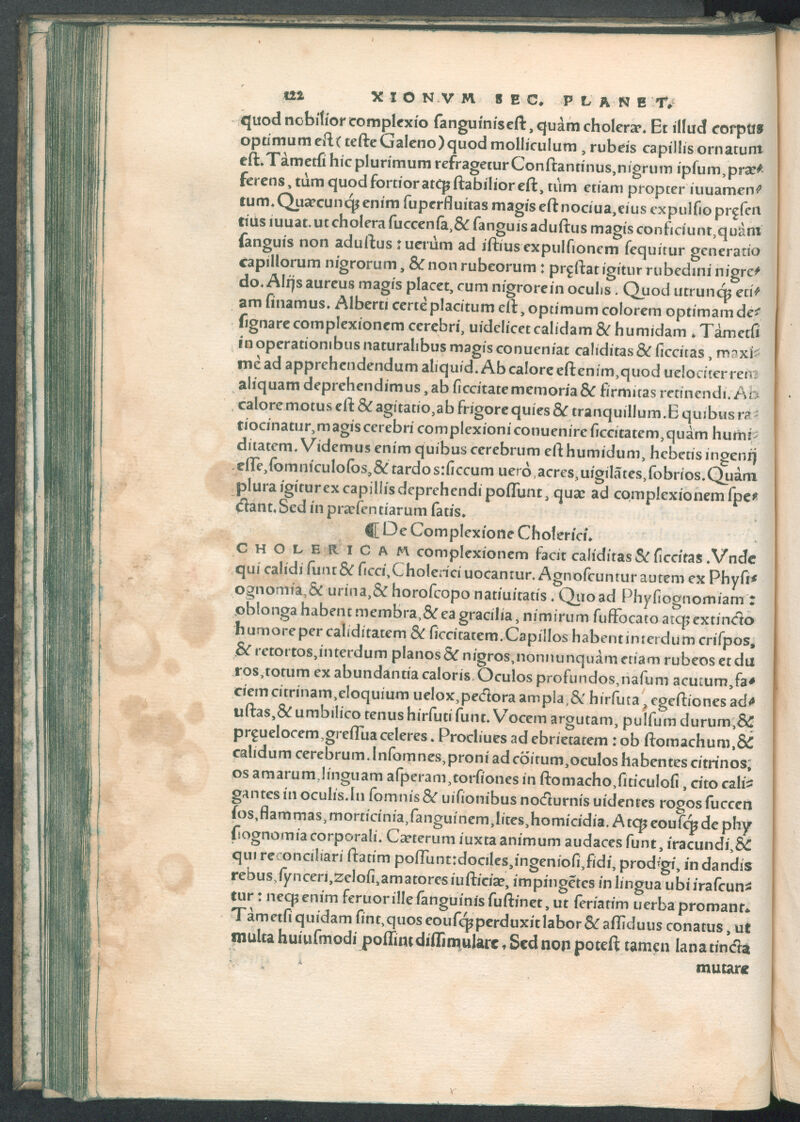 122 XIONVM SEC. PLANET.
quod nobilior complexio ſanguinis eſt, quàm choleræ. Et illud corpus
optimum eſt (teſte Galeno) quod molliculum, rubeis capillis ornatum
eſt. Tàmetſi hic plurimum refragetur Conſtantinus, nigrum ipſum, præ⸗
ferens, tùm quod fortior atq; ſtabilior eſt, tùm etiam propter iuuamen⸗
tum. Quæcunq; enim ſuperfluitas magis eſt nociua, eius expulſio pręſen
tius iuuat. ut cholera ſuccenſa, & ſanguis aduſtus magis conficiunt, quàm
ſanguis non aduſtus: uerùm ad iſtius expulſionem ſequitur generatio
capillorum nigrorum, & non rubeorum: pręſtat igitur rubedini nigre⸗
do. Alijs aureus magis placet, cum nigrore in oculis. Quod utrunq; eti⸗
am ſinamus. Alberti certè placitum eſt, optimum colorem optimam de⸗
ſignare complexionem cerebri, uidelicet calidam & humidam. Tàmetſi
in operationibus naturalibus magis conueniat caliditas & ſiccitas, maxi⸗
mè ad apprehendendum aliquid. Ab calore eſt enim, quod uelociter rem
aliquam deprehendimus, ab ſiccitate memoria & firmitas retinendi. Ab
calore motus eſt & agitatio, ab frigore quies & tranquillum. E quibus ra⸗
tiocinatur, magis cerebri complexioni conuenire ſiccitatem, quàm humi⸗
ditatem. Videmus enim quibus cerebrum eſt humidum, hebetis ingenij
eſſe, ſomniculoſos, & tardos: ſiccum uerò, acres, uigilãtes, ſobrios. Quàm
plura igitur ex capillis deprehendi poſſunt, quæ ad complexionem ſpe⸗
ctant. Sed in præſentiarum ſatis.
¶ De Complexione Cholerici.
CHOLERICAM complexionem facit caliditas & ſiccitas. Vnde
qui calidi ſunt & ſicci, Cholerici uocantur. Agnoſcuntur autem ex Phyſi⸗
ognomia, & urina, & horoſcopo natiuitatis. Quo ad Phyſiognomiam:
oblonga habent membra, & ea gracilia, nimirum ſuffocato atq; extincto
humore per caliditatem & ſiccitatem. Capillos habent interdum criſpos,
& retortos, interdum planos & nigros, nonnunquàm etiam rubeos et du
ros, totum ex abundantia caloris. Oculos profundos, naſum acutum, fa⸗
ciem citrinam, eloquium uelox, pectora ampla, & hirſuta, egeſtiones ad⸗
uſtas, & umbilico tenus hirſuti ſunt. Vocem argutam, pulſum durum, &
pręuelocem, greſſua celeres. Procliues ad ebrietatem: ob ſtomachum, &
calidum cerebrum. Inſomnes, proni ad cöitum, oculos habentes citrinos,
os amarum, linguam aſperam, torſiones in ſtomacho, ſiticuloſi, cito cali⸗
gantes in oculis. In ſomnis & uiſionibus nocturnis uidentes rogos ſuccen
ſos, flammas, morticinia, ſanguinem, lites, homicidia. Atq; eouſq; de phy
ſiognomia corporali. Cæterum iuxta animum audaces ſunt, iracundi, &
qui reconciliari ſtatim poſſunt: dociles, ingenioſi, fidi, prodigi, in dandis
rebus, ſynceri, zeloſi, amatores iuſticiæ, impingẽtes in lingua ubi iraſcun⸗
tur: neq; enim feruor ille ſanguinis ſuſtinet, ut ſeriatim uerba promant.
Tàmetſi quidam ſint, quos eouſq; perduxit labor & aſſiduus conatus, ut
multa huiuſmodi poſſint diſſimulare. Sed non poteſt tamen lana tincta
mutare